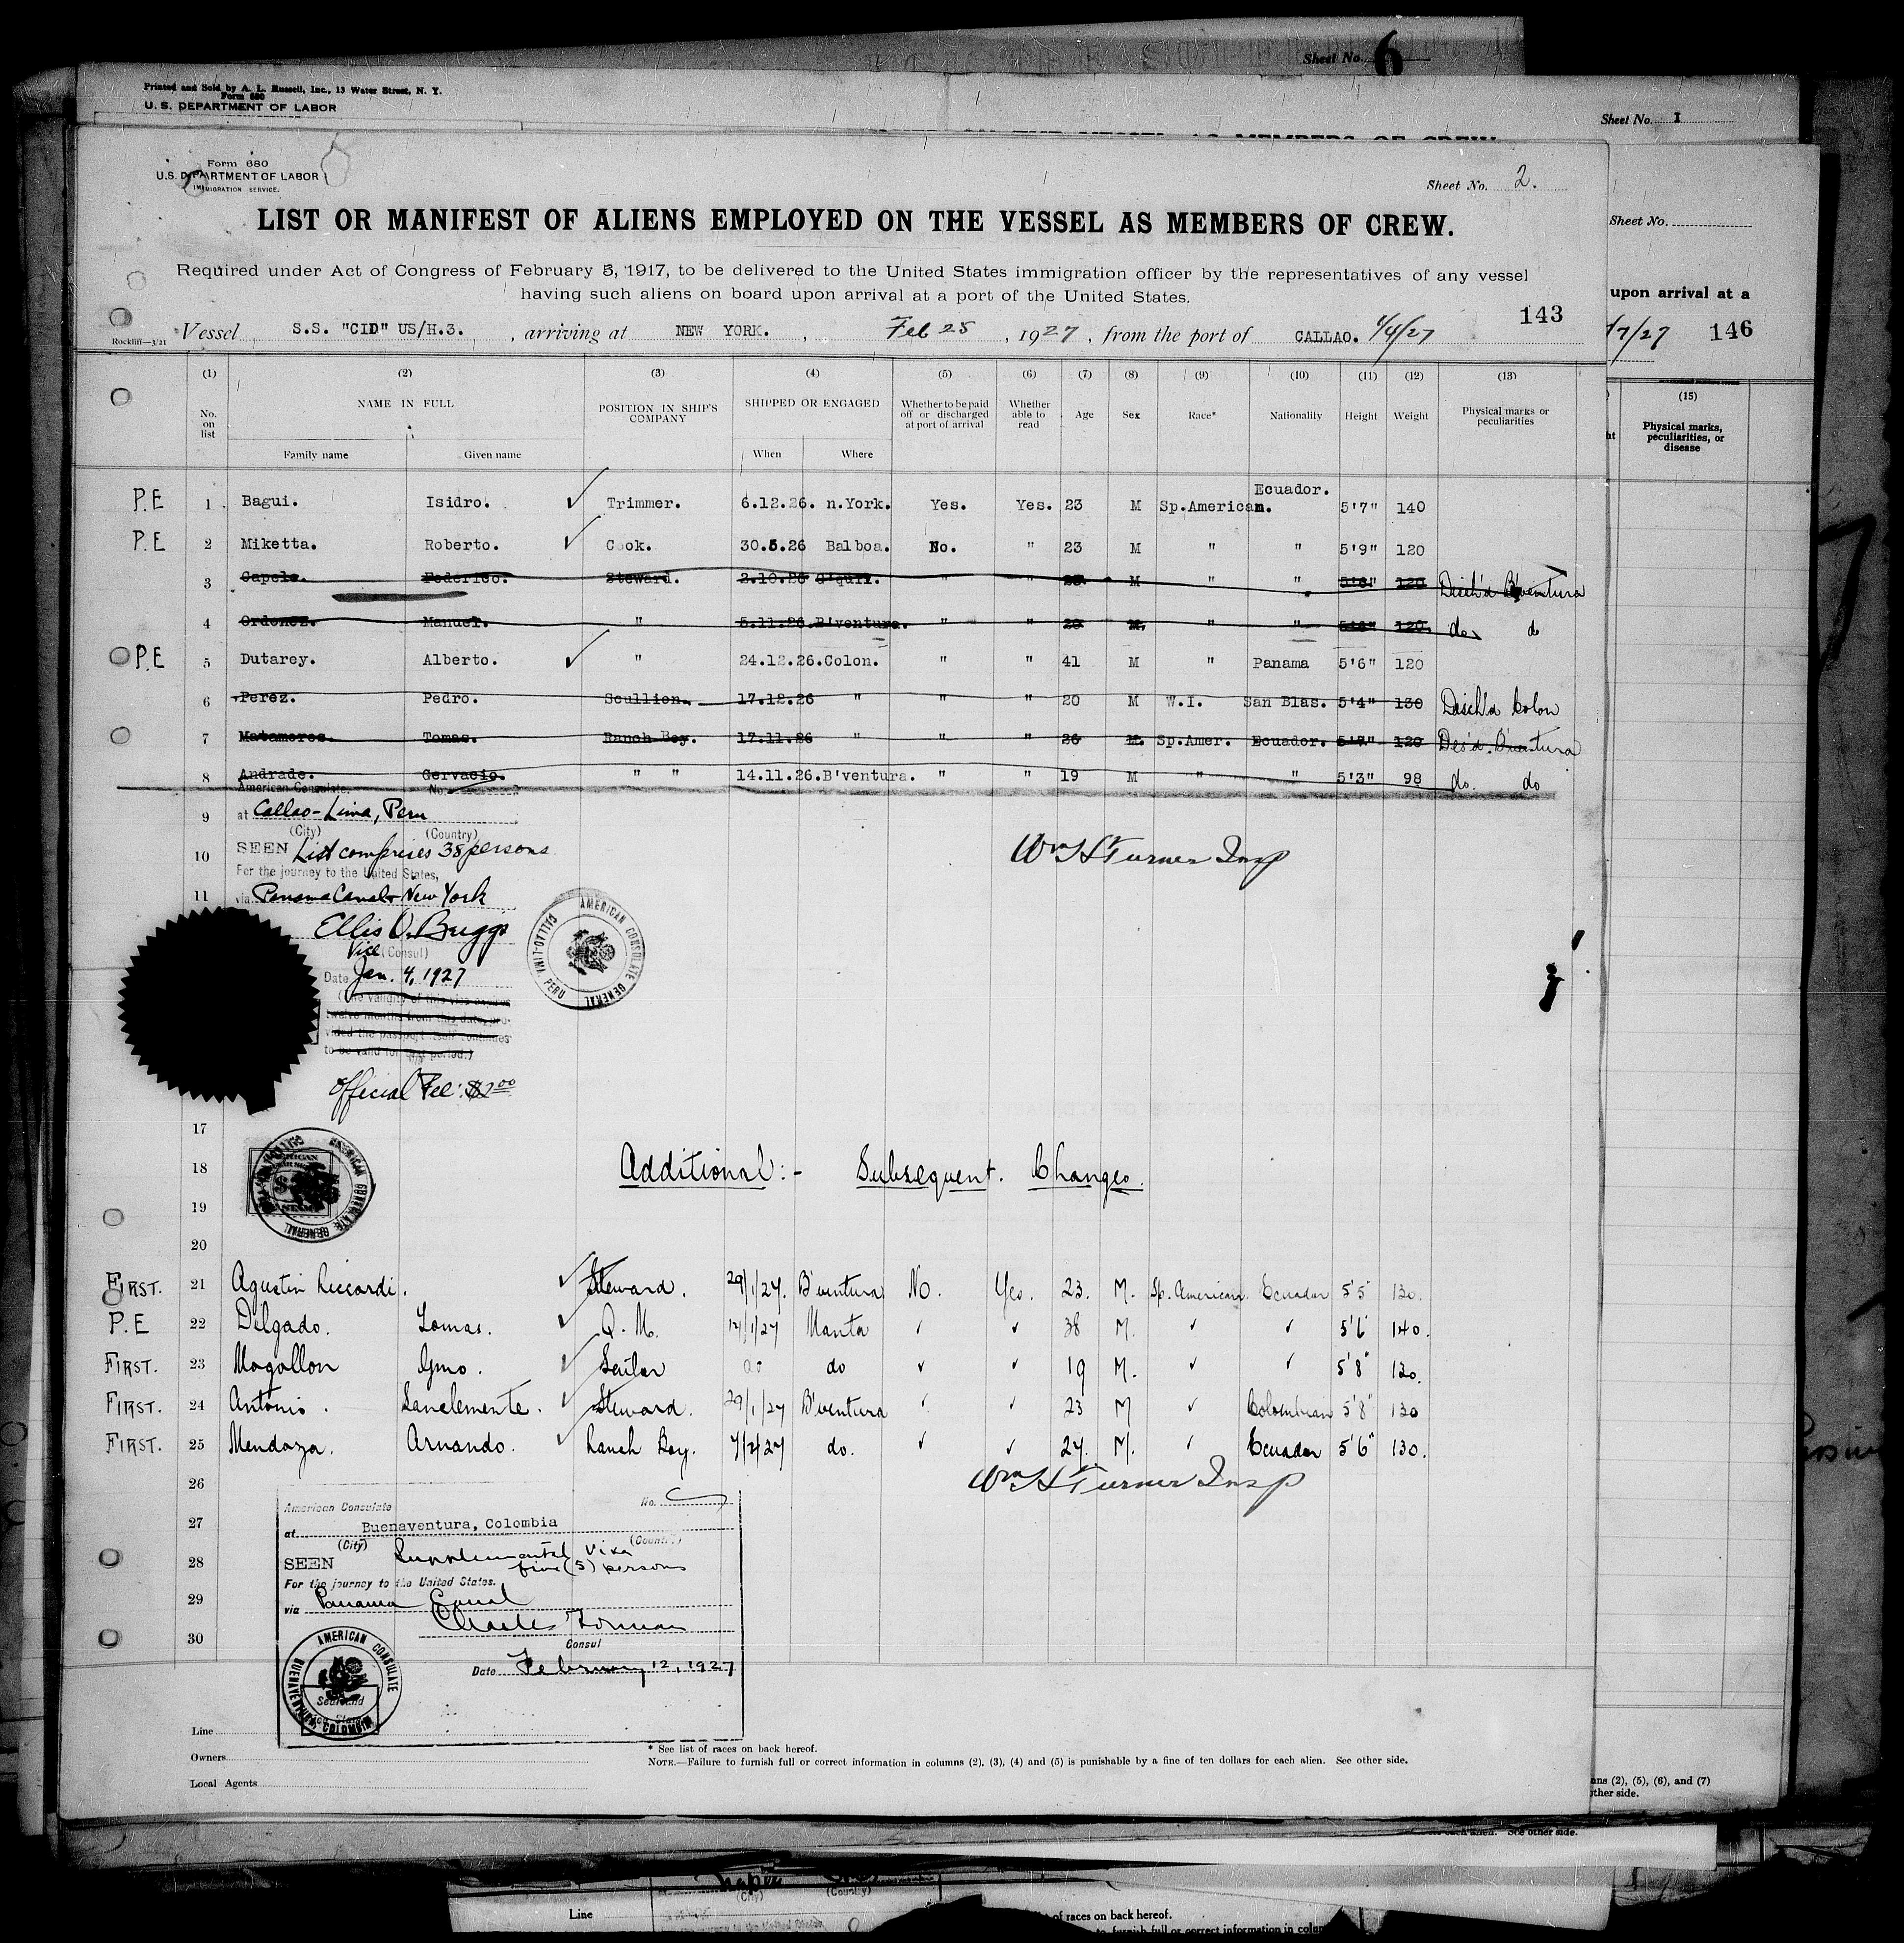 Sheet No. 6
Printed and Sold by A. L. Russell, Inc., 13 Water Street, N. Y.
Form 680
U. S. DEPARTMENT OF LABOR
Sheet No. 1
Form 680
U.S. DEPARTMENT OF LABOR
IMMIGRATION SERVICE.
Sheet No. 2.
LIST OR MANIFEST OF ALIENS EMPLOYED ON THE VESSEL AS MEMBERS OF CREW.
Sheet No.
Required under Act of Congress of February 5, 1917, to be delivered to the United States immigration officer by the representatives of any vessel
having such aliens on board upon arrival at a port of the United States.
upon arrival at a
143
Vessel S.S. "CID" US/H.3. , arriving at NEW YORK. , Feb 25 , 1927 , from the port of CALLAO. 1/4/27
Rockliff—3/21
/7/27 146
(1) (2) (3) (4) (5) (6) (7) (8) (9) (10) (11) (12) (13)
No. on list NAME IN FULL POSITION IN SHIP'S COMPANY SHIPPED OR ENGAGED Whether to be paid off or discharged at port of arrival Whether able to read Age Sex Race* Nationality Height Weight Physical marks or peculiarities
Family name Given name When Where
(15)
Physical marks, peculiarities, or disease
P.E 1 Bagui. Isidro. Trimmer. 6.12.26. n.York. Yes. Yes. 23 M Sp.American. Ecuador. 5'7" 140
P.E 2 Miketta. Roberto. Cook. 30.5.26 Balboa. No. " 23 M " " 5'9" 120
3 Capelo. Federico. Steward. 2.10.26 G'quil. " " M " " 5'6" 120 Disch'd B'ventura
4 Ordonez. Manuel. " 5.11.26.B'ventura. " " 20 M. " " 5'6" 120. do. do
P.E 5 Dutarey. Alberto. " 24.12.26.Colon. " " 41 M " Panama 5'6" 120
6 Perez. Pedro. Scullion. 17.12.26 " " " 20 M W.I. San Blas. 5'4" 130 Disch'd Colon
7 Matamoros. Tomas. Ranch Boy. 17.11.26 " " " 26 M. Sp.Amer. Ecuador. 5'7" 120 Des'd. B'ventura
8 Andrade. Gervacio. " " 14.11.26.B'ventura. " " 19 M " " 5'3" 98 do. do
American Consulate, No.
9 at Callao-Lima, Peru
(City) (Country)
10 SEEN List comprises 38 persons
Wm H Turner Insp
For the journey to the United States,
11 via Panama Canal + New York
Ellis O. Briggs
Vice (Consul)
Date Jan. 4, 1927
(The validity of this visa
twelve months from this date, pro-
vided the passport itself continues
to be valid for that period.)
AMERICAN CONSULATE GENERAL CALLAO-LIMA PERU
Official Fee: $2.00
17
18 Additional:- Subsequent. Changes.
AMERICAN CONSULATE GENERAL
19
20
FIRST. 21 Agustin Riccardi. Steward. 29/1/27. B'ventura No. Yes. 23. M. Sp. American. Ecuador 5'5 130.
P.E 22 Delgado. Tomas. Q. M. 14/1/27 Manta ✓ ✓ 38 M. ✓ ✓ 5'6 140.
FIRST. 23 Mogollon Gmo. Sailor do do ✓ ✓ 19 M. ✓ ✓ 5'8" 120.
FIRST. 24 Antonio. Sanclemente. Steward. 29/1/27 B'ventura ✓ ✓ 23 M ✓ Colombian 5'8" 130
FIRST. 25 Mendoza. Arnando. Ranch Boy. 7/2/27 do. ✓ ✓ 24. M. ✓ Ecuador 5'6" 130.
26 Wm H Turner Insp
American Consulate No.
27 at Buenaventura, Colombia
(City) (Country)
28 SEEN Supplemental Visa
five (5) persons
For the journey to the United States.
29 via Panama Canal
Charles Forman
30 Consul
Date February 12, 1927
AMERICAN CONSULATE BUENAVENTURA, COLOMBIA
Line
Owners
Local Agents
* See list of races on back hereof.
NOTE.—Failure to furnish full or correct information in columns (2), (3), (4) and (5) is punishable by a fine of ten dollars for each alien. See other side.
ns (2), (5), (6), and (7)
other side.
each alien. See other side.
(City) (Country)
Line
of races on back hereof.
to furnish full or correct information in colum